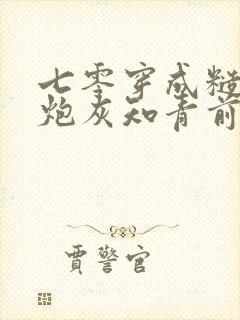 七零穿成糙
炮灰知青前
贾警官